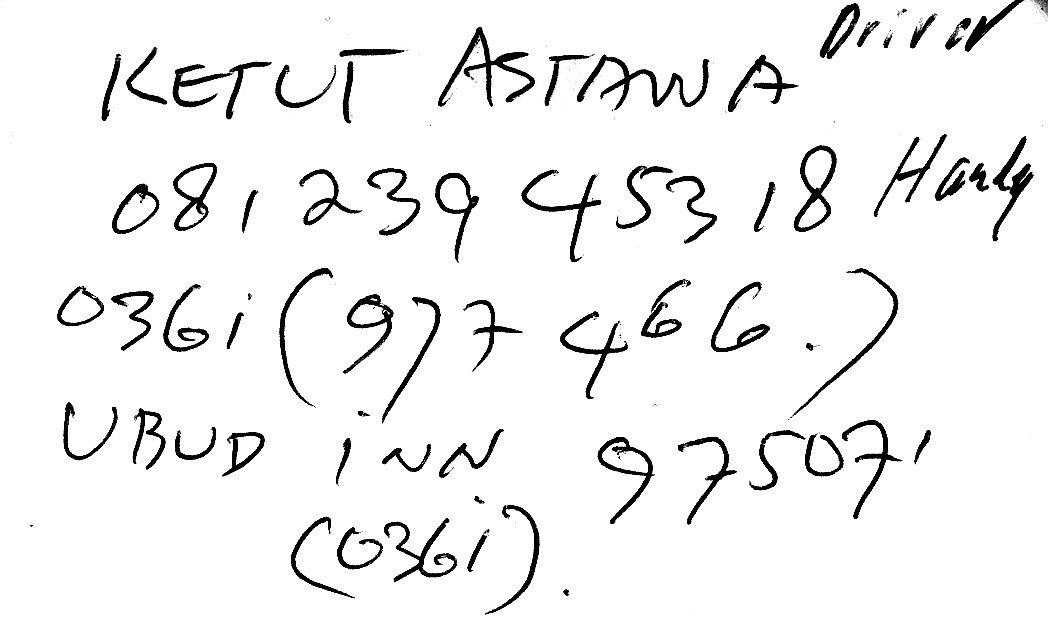 KETUT ASTAWA Driver
081 239 45318 Handy
0361 (977 466.)
UBUD INN 975071
(0361).